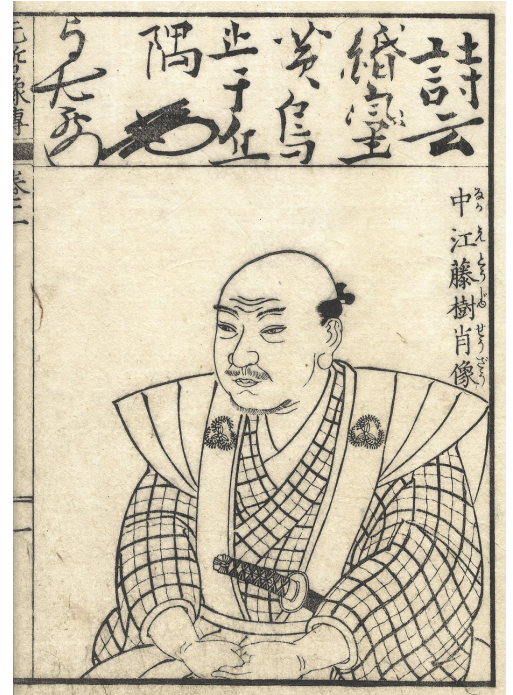 詩云
緡蛮
黄鳥
止于丘
隅
中江藤樹肖像
なかえとうじゆせうざう
先哲像傳
卷一
一